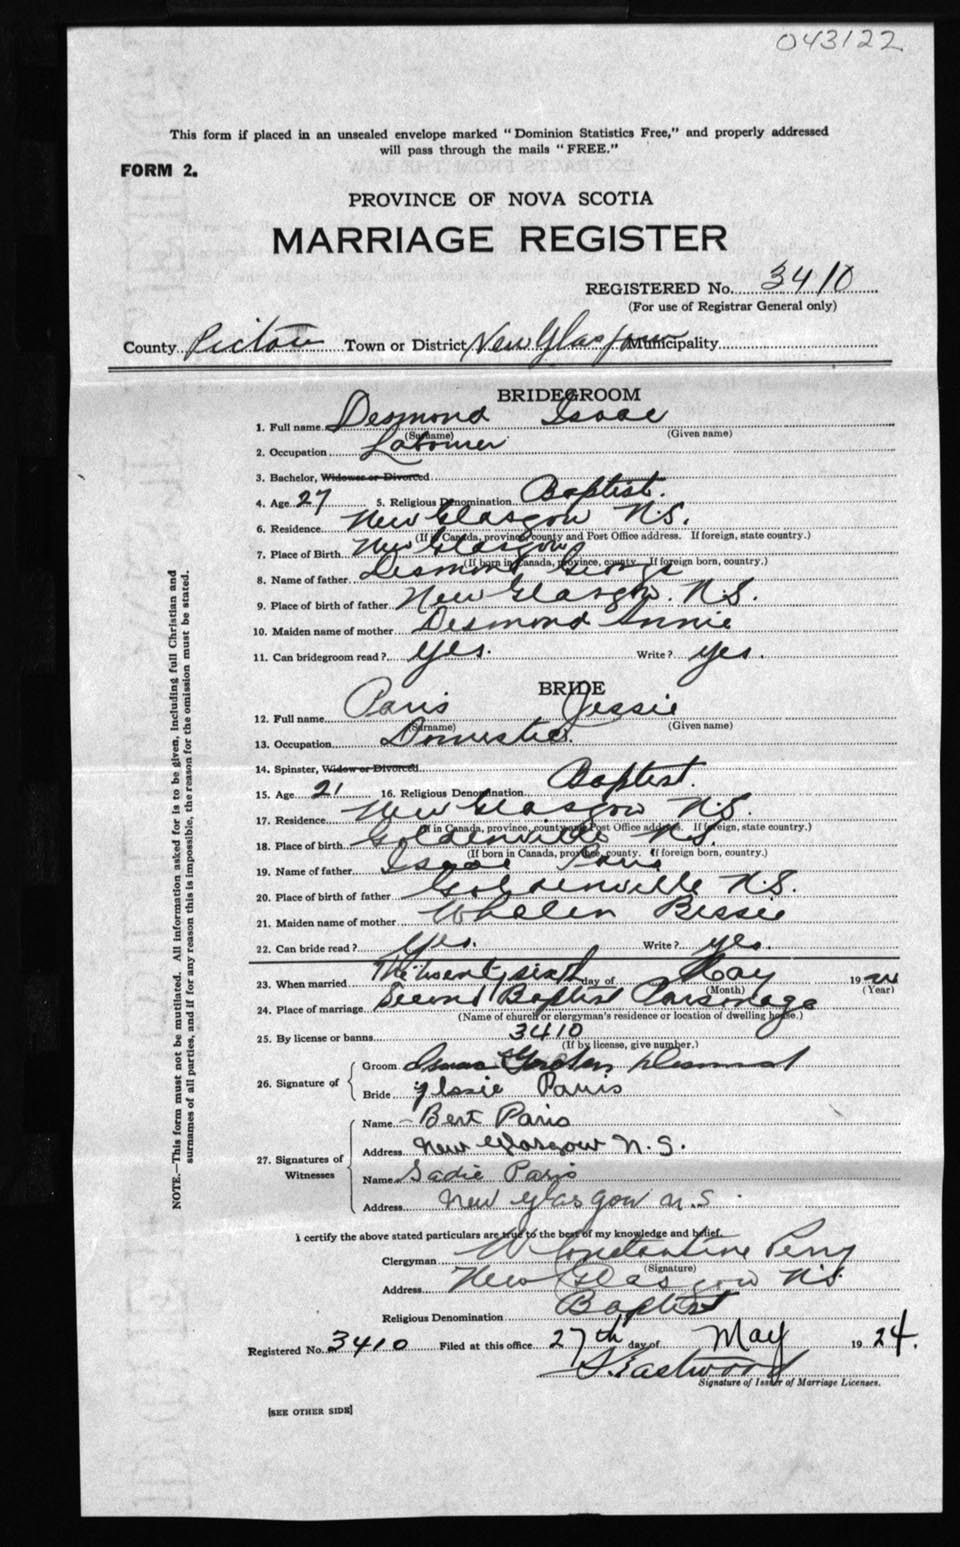 043122
This form if placed in an unsealed envelope marked "Dominion Statistics Free," and properly addressed
will pass through the mails "FREE."
FORM 2.
PROVINCE OF NOVA SCOTIA
MARRIAGE REGISTER
REGISTERED No. 3410
(For use of Registrar General only)
County Pictou Town or District New Glasgow Municipality
BRIDEGROOM
1. Full name Desmond Isaac
(Surname) (Given name)
2. Occupation Laborer
3. Bachelor, Widower or Divorced
4. Age 27 5. Religious Denomination Baptist.
6. Residence New Glasgow N.S.
(If in Canada, province, county and Post Office address. If foreign, state country.)
7. Place of Birth New Glasgow
(If born in Canada, province, county. If foreign born, country.)
8. Name of father Desmond George
9. Place of birth of father New Glasgow. N.S.
10. Maiden name of mother Desmond Annie
11. Can bridegroom read? yes. Write? yes.
BRIDE
12. Full name Paris Jessie
(Surname) (Given name)
13. Occupation Domestic.
14. Spinster, Widow or Divorced
15. Age 21 16. Religious Denomination Baptist.
17. Residence New Glasgow N.S.
(If in Canada, province, county and Post Office address. If foreign, state country.)
18. Place of birth Goldenville N.S.
(If born in Canada, province, county. If foreign born, country.)
19. Name of father Isaac Paris
20. Place of birth of father Goldenville N.S.
21. Maiden name of mother Whelen Bessie
22. Can bride read? Yes. Write? yes.
23. When married The twenty sixth day of May 1924
(Month) (Year)
24. Place of marriage Second Baptist Parsonage
(Name of church or clergyman's residence or location of dwelling house.)
25. By license or banns 3410
(If by license, give number.)
26. Signature of Groom Desmond
Bride Jessie Parris
27. Signatures of Witnesses Name Bert Paris
Address New Glasgow N.S.
Name Sadie Paris
Address New Glasgow N.S.
I certify the above stated particulars are true to the best of my knowledge and belief.
Clergyman W Constantine Perry
(Signature)
Address New Glasgow N.S.
Religious Denomination Baptist
Registered No. 3410 Filed at this office 27th day of May 1924.
S. Eastwood
Signature of Issuer of Marriage Licenses.
[SEE OTHER SIDE]
NOTE.—This form must not be mutilated. All information asked for is to be given, including full Christian and
surnames of all parties, and if for any reason this is impossible, the reason for the omission must be stated.